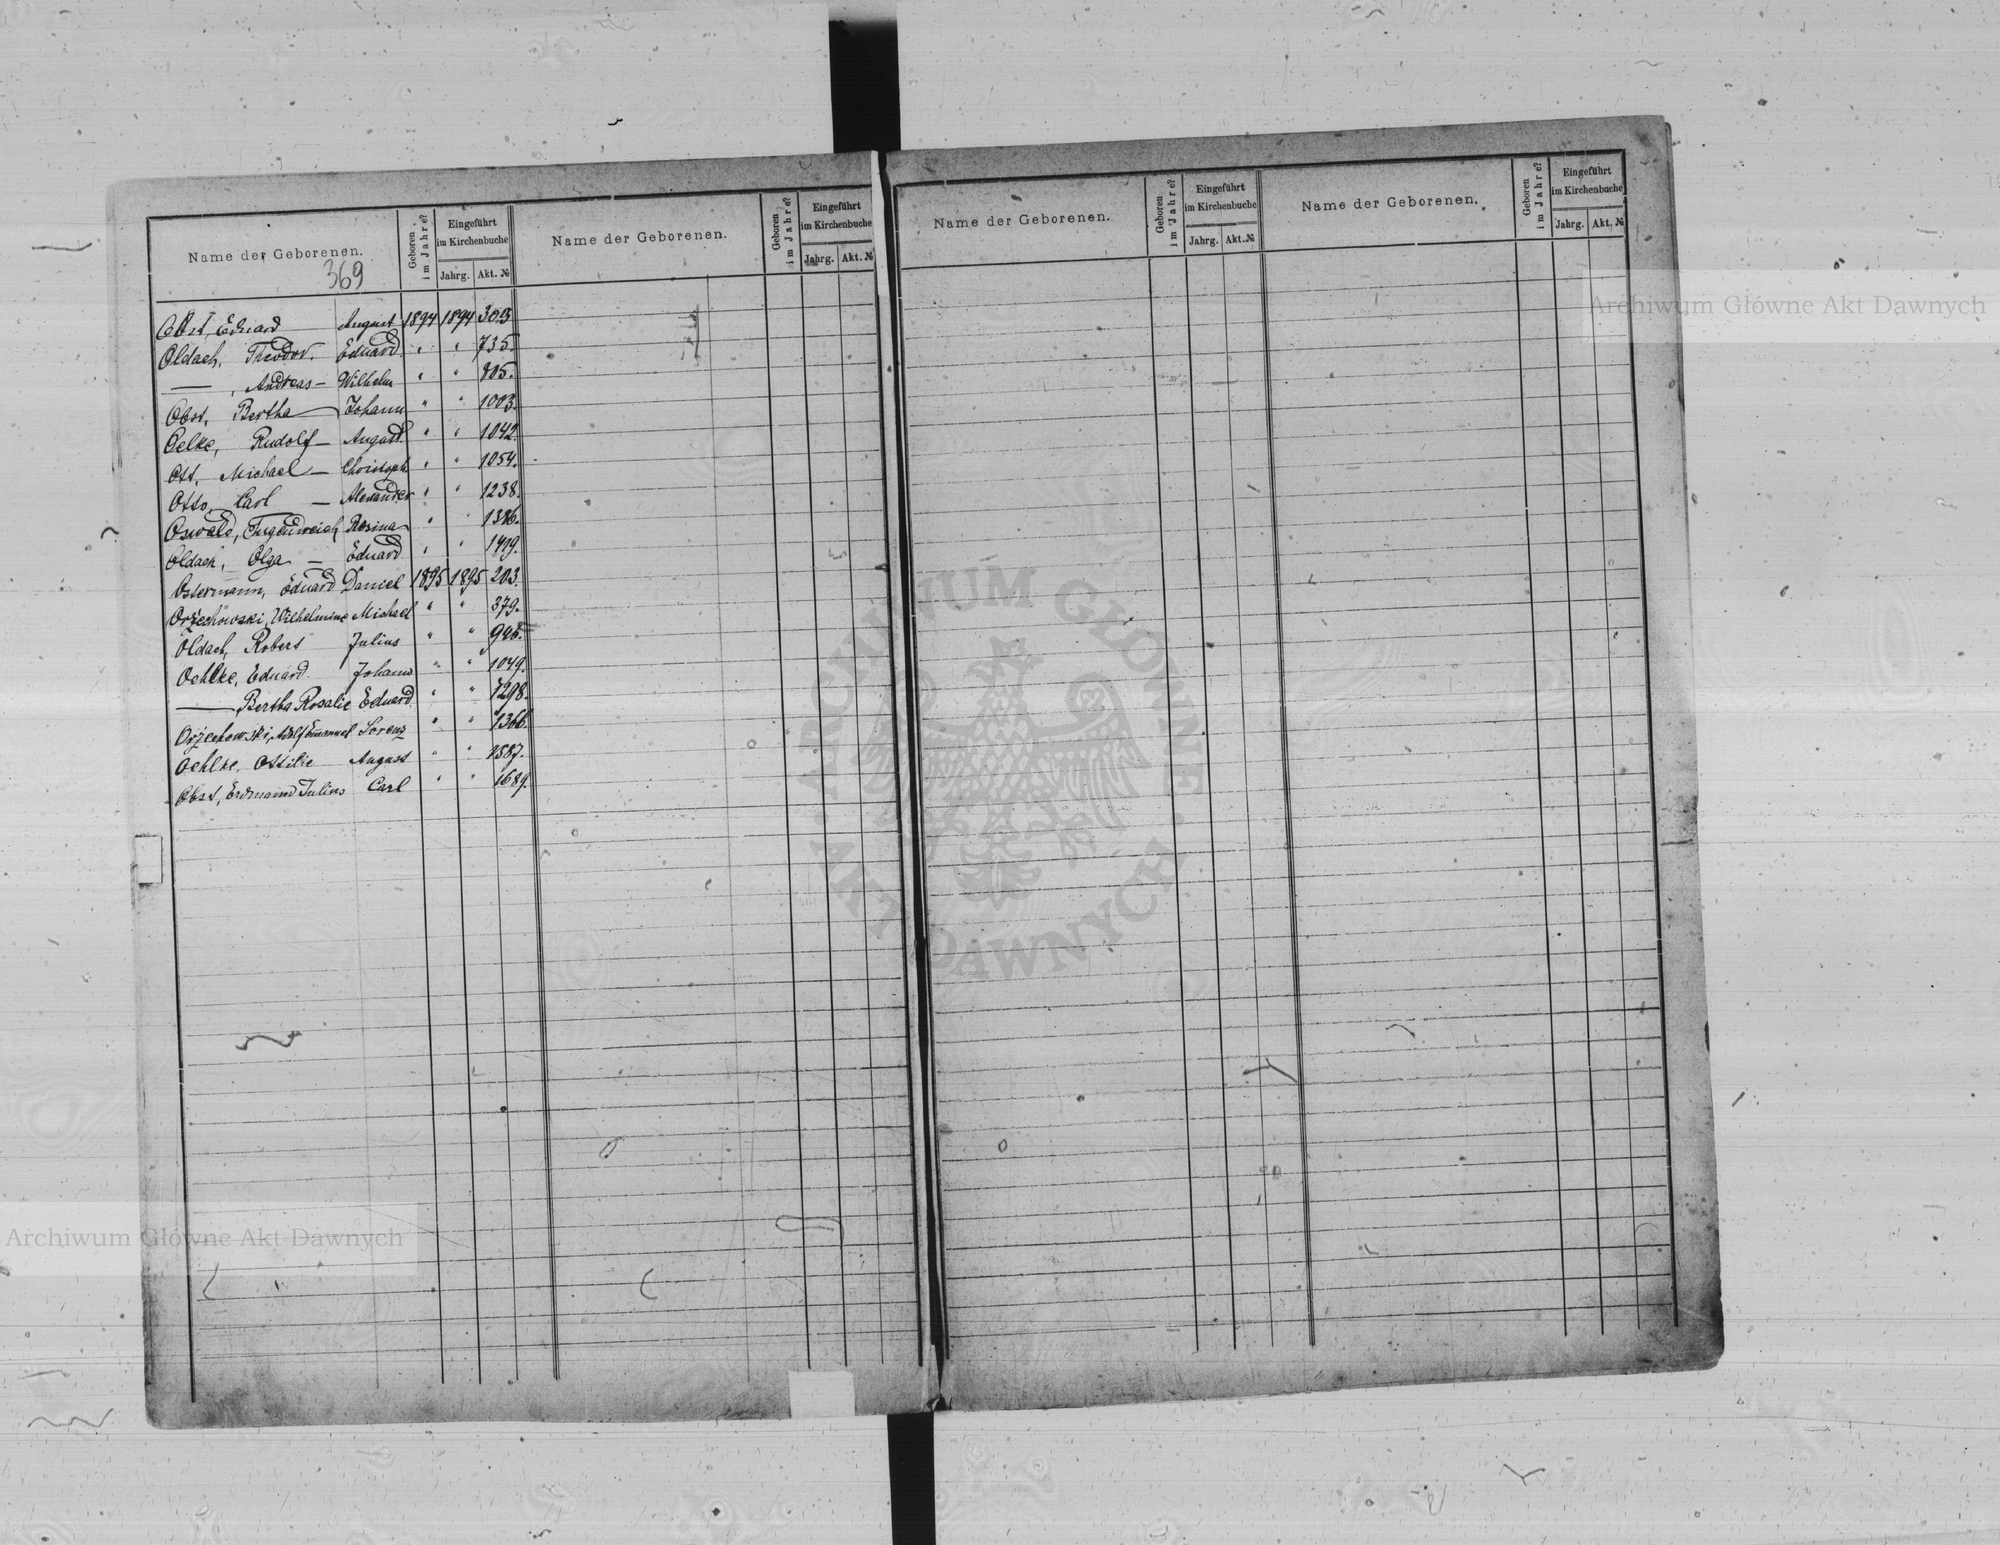 Name der Geborenen.
Geboren im Jahre?
Eingeführt im Kirchenbuche
Jahrg. Akt. №
Name der Geborenen.
Geboren im Jahre?
Eingeführt im Kirchenbuche
Jahrg. Akt. №
369
Obst, Eduard August 1894 1894 303
Oldach, Theodor. Eduard " " 735.
— , Andreas — Wilhelm " " 805.
Obst, Bertha Johann " " 1003.
Oelke, Rudolf — August " " 1042.
Ott, Michael — Christoph " " 1054.
Otto, Carl — Alexander " " 1238.
Oswald, Tugendreich Rosina " "
Oldach, Olga — Eduard " " 1419.
Ostermann, Eduard Daniel 1895 1895 203.
Orzechowski, Wilhelmine Michael " " 379.
Oldach, Robert Julius " " 926.
Oehlke, Eduard Johann " " 1049.
— Bertha Rosalie Eduard " " 1298.
Orzechowski, Adolf Emanuel Lorenz " " 1366.
Oehlke, Ottilie August " " 1587.
Obst, Erdmann Julius Carl " " 1689.
Name der Geborenen.
Geboren im Jahre?
Eingeführt im Kirchenbuche
Jahrg. Akt. №
Name der Geborenen.
Geboren im Jahre?
Eingeführt im Kirchenbuche
Jahrg. Akt. №
Archiwum Główne Akt Dawnych
ARCHIWUM GŁÓWNE
AKT DAWNYCH
Archiwum Główne Akt Dawnych